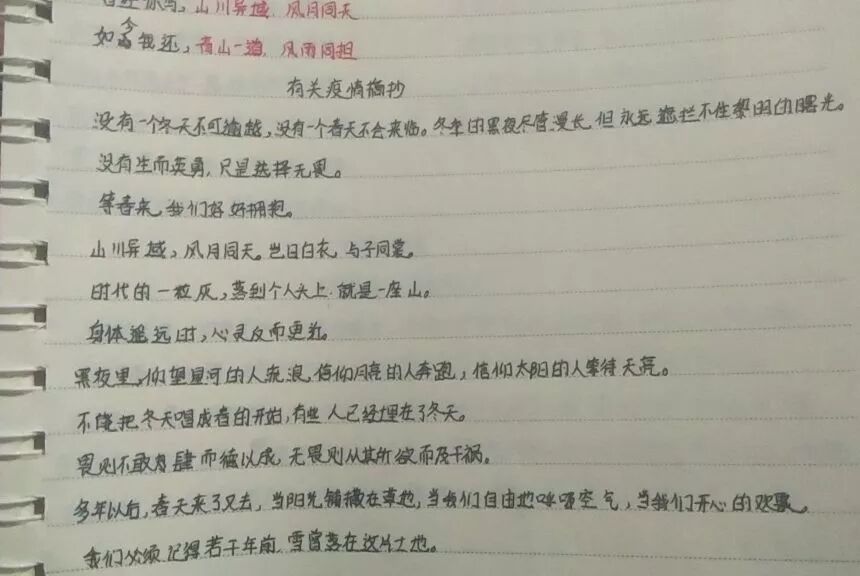 曾经你写，山川异域，风月同天
如今我还，青山一道，风雨同担
有关疫情摘抄
没有一个冬天不可逾越，没有一个春天不会来临。冬季的黑夜尽管漫长，但永远遮拦不住黎明的曙光。
没有生而英勇，只是选择无畏。
等春来，我们好好拥抱。
山川异域，风月同天。岂曰白衣，与子同裳。
时代的一粒灰，落到个人头上，就是一座山。
身体遥远时，心灵反而更近。
黑夜里，仰望星河的人流浪，信仰月亮的人奔跑，信仰太阳的人等待天亮。
不能把冬天唱成春的开始，有些人已经埋在了冬天。
畏则不敢肆而德以成，无畏则从其所欲而及于祸。
多年以后，春天来了又去，当阳光铺藏在草地，当我们自由地呼吸空气，当我们开心的欢聚。
我们必须记得若干年前，雪曾落在这片土地。